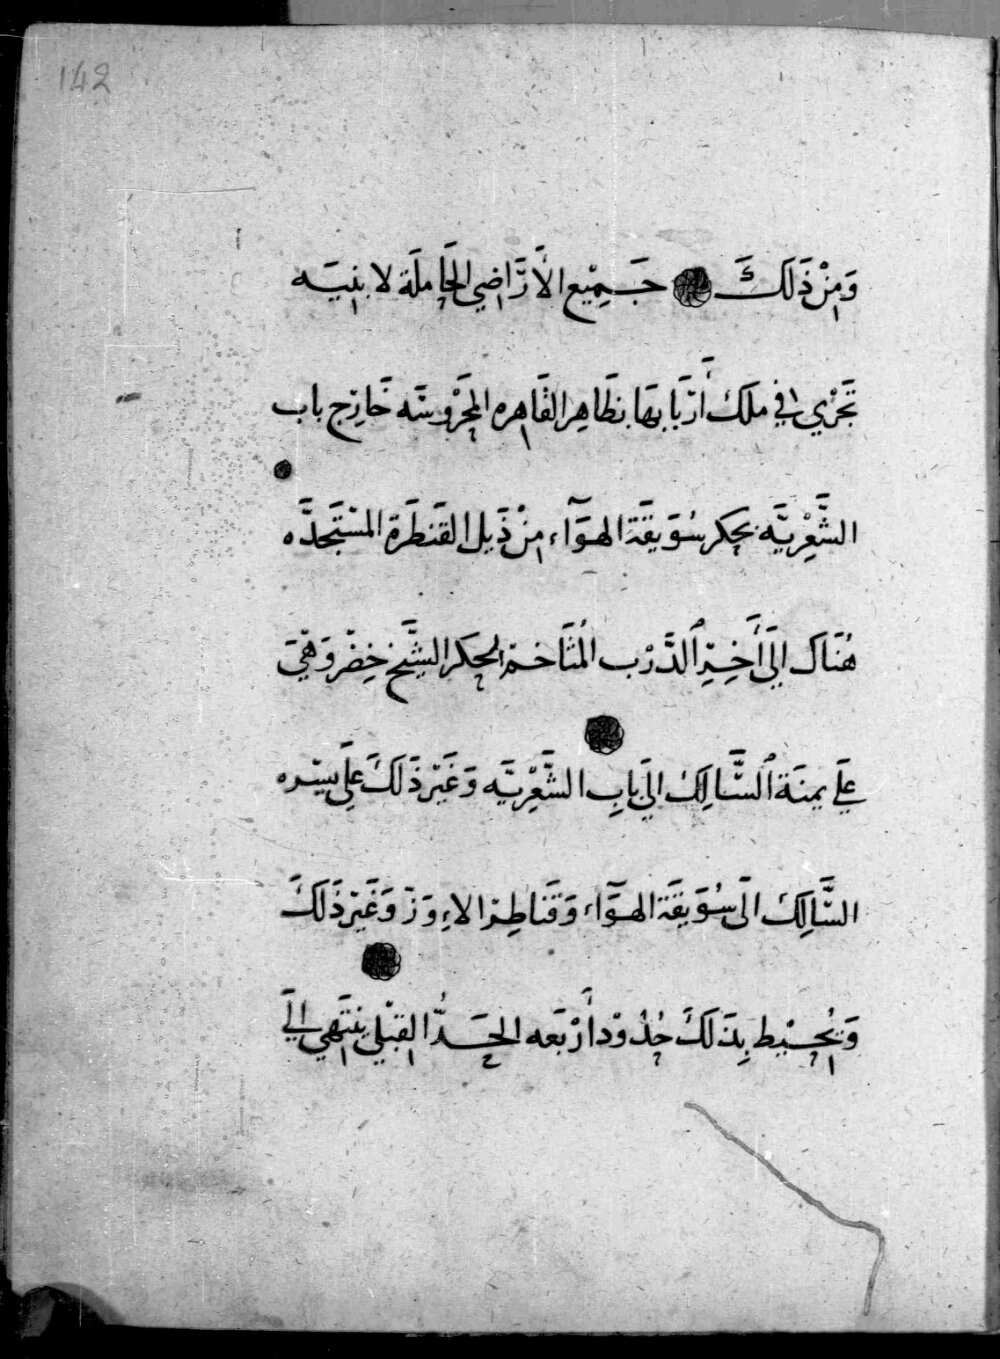 142
وَمِنْ ذَلَكَ جَمِيْع الأَرَاضِي الحَامِلَة لا بنيَه
تَجَرْي في ملَك أَرْبَابهَا بظَاهِر القَاهِره المحَرْوسَه خَارج باب
الشَّعِرْيَّه بحِكر سُوَيقَة الهوَآء مِنْ ذَيل القَنطَرَة المسْتَجدَّه
هُنَاك الَي أَخِرِ الدَّرْب المُتَاخم لحِكر الشَّيخ خِضْر وَهْيَ
عَلَي يمنَة السَّالِك الَي بابِ الشَّعِرْيَّه وَغَيْر ذَلَكَ عَلي يسْره
السَّالِكَ الَى سُوَيقَة الهوَآء وَقَناطِر الاوَزْ وَغَيْر ذَلَكَ
وَيُحِيْط بِذَلَكَ حُدُوْد أَرْبَعه الحَدُّ القبْلي ينتَهي الَي